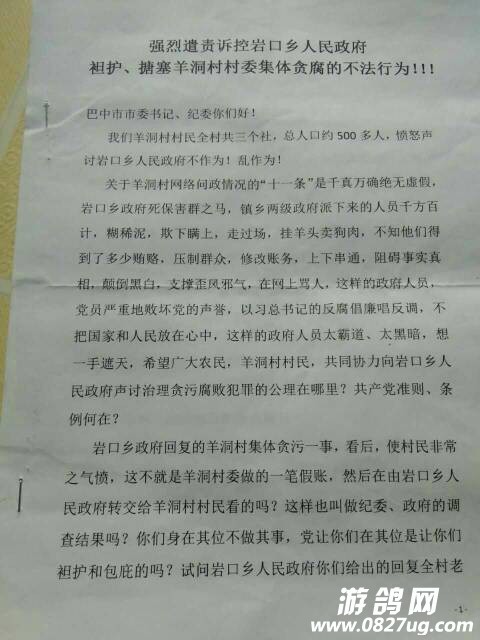 强烈遣责诉控岩口乡人民政府
袒护、搪塞羊洞村村委集体贪腐的不法行为!!!
巴中市市委书记、纪委你们好!
我们羊洞村村民全村共三个社，总人口约 500 多人，愤怒声
讨岩口乡人民政府不作为！乱作为！
关于羊洞村网络问政情况的“十一条”是千真万确绝无虚假，
岩口乡政府死保害群之马，镇乡两级政府派下来的人员千方百
计，糊稀泥，欺下瞒上，走过场，挂羊头卖狗肉，不知他们得
到了多少贿赂，压制群众，修改账务，上下串通，阻碍事实真
相，颠倒黑白，支撑歪风邪气，在网上骂人，这样的政府人员，
党员严重地败坏党的声誉，以习总书记的反腐倡廉唱反调，不
把国家和人民放在心中，这样的政府人员太霸道、太黑暗，想
一手遮天，希望广大农民，羊洞村村民，共同协力向岩口乡人
民政府声讨治理贪污腐败犯罪的公理在哪里？共产党准则、条
例何在？
岩口乡政府回复的羊洞村集体贪污一事，看后，使村民非常
之气愤，这不就是羊洞村委做的一笔假账，然后在由岩口乡人
民政府转交给羊洞村村民看的吗？这样也叫做纪委、政府的调
查结果吗？你们身在其位不做其事，党让你们在其位是让你们
袒护和包庇的吗？试问岩口乡人民政府你们给出的回复全村老
-1-
游鸽网
www.0827ug.com